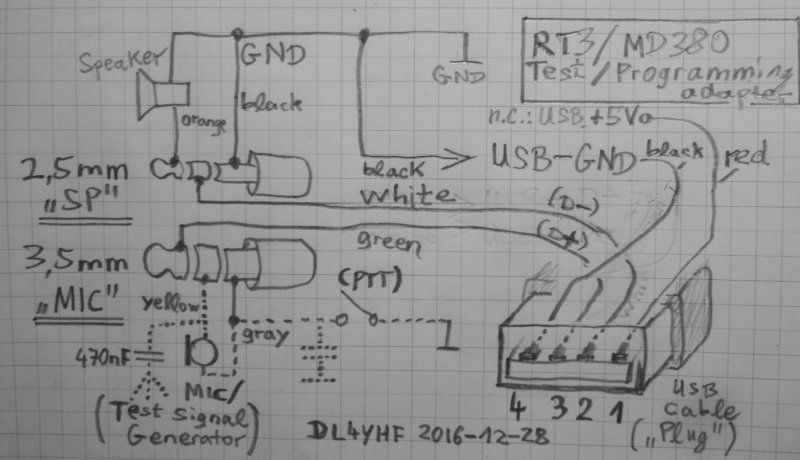 RT3/MD380
Test/Programming
adapter
Speaker
GND
GND
orange
black
n.c.: USB +5V
2,5mm
"SP"
black
USB-GND
black
red
white
(D-)
green
(D+)
3,5mm
"MIC"
yellow
(PTT)
gray
470nF
MIC/
(Test Signal
Generator)
4 3 2 1
USB
Cable
("Plug")
DL4YHF 2016-12-28